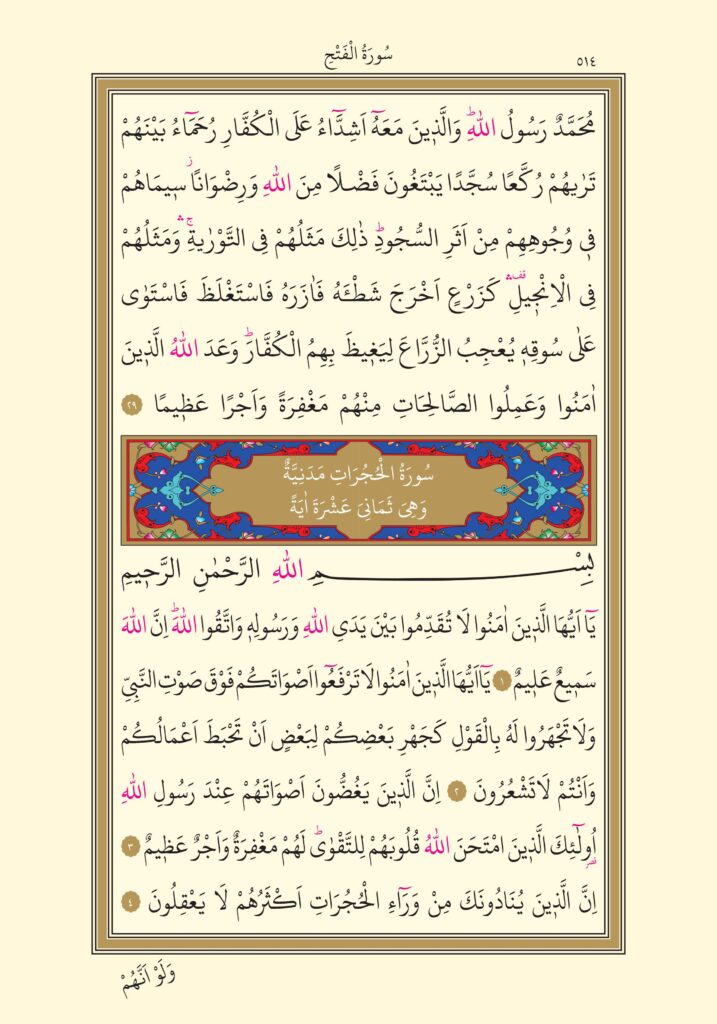 سُورَةُ الْفَتْحِ
٥١٤
مُحَمَّدٌ رَسُولُ اللّٰهِۜ وَالَّذ۪ينَ مَعَهُٓ اَشِدَّٓاءُ عَلَى الْكُفَّارِ رُحَمَٓاءُ بَيْنَهُمْ
تَرٰيهُمْ رُكَّعًا سُجَّدًا يَبْتَغُونَ فَضْلًا مِنَ اللّٰهِ وَرِضْوَانًاۘ س۪يمَاهُمْ
ف۪ي وُجُوهِهِمْ مِنْ اَثَرِ السُّجُودِۜ ذٰلِكَ مَثَلُهُمْ فِي التَّوْرٰيةِۚۛ وَمَثَلُهُمْ
فِي الْاِنْج۪يلِ۠ۛ كَزَرْعٍ اَخْرَجَ شَطْـَٔهُ فَاٰزَرَهُ فَاسْتَغْلَظَ فَاسْتَوٰى
عَلٰى سُوقِه۪ يُعْجِبُ الزُّرَّاعَ لِيَغ۪يظَ بِهِمُ الْكُفَّارَۜ وَعَدَ اللّٰهُ الَّذ۪ينَ
اٰمَنُوا وَعَمِلُوا الصَّالِحَاتِ مِنْهُمْ مَغْفِرَةً وَاَجْرًا عَظ۪يمًا ٢٩
سُورَةُ الْحُجُرَاتِ مَدَنِيَّةٌ
وَهِيَ ثَمَانِيَ عَشْرَةَ اٰيَةً
بِسْمِ اللّٰهِ الرَّحْمٰنِ الرَّح۪يمِ
يَٓا اَيُّهَا الَّذ۪ينَ اٰمَنُوا لَا تُقَدِّمُوا بَيْنَ يَدَيِ اللّٰهِ وَرَسُولِه۪ وَاتَّقُوا اللّٰهَۜ اِنَّ اللّٰهَ
سَم۪يعٌ عَل۪يمٌ ١ يَٓا اَيُّهَا الَّذ۪ينَ اٰمَنُوا لَا تَرْفَعُٓوا اَصْوَاتَكُمْ فَوْقَ صَوْتِ النَّبِيِّ
وَلَا تَجْهَرُوا لَهُ بِالْقَوْلِ كَجَهْرِ بَعْضِكُمْ لِبَعْضٍ اَنْ تَحْبَطَ اَعْمَالُكُمْ
وَاَنْتُمْ لَا تَشْعُرُونَ ٢ اِنَّ الَّذ۪ينَ يَغُضُّونَ اَصْوَاتَهُمْ عِنْدَ رَسُولِ اللّٰهِ
اُو۬لٰٓئِكَ الَّذ۪ينَ امْتَحَنَ اللّٰهُ قُلُوبَهُمْ لِلتَّقْوٰىۜ لَهُمْ مَغْفِرَةٌ وَاَجْرٌ عَظ۪يمٌ ٣
اِنَّ الَّذ۪ينَ يُنَادُونَكَ مِنْ وَرَٓاءِ الْحُجُرَاتِ اَكْثَرُهُمْ لَا يَعْقِلُونَ ٤
وَلَوْ اَنَّهُمْ